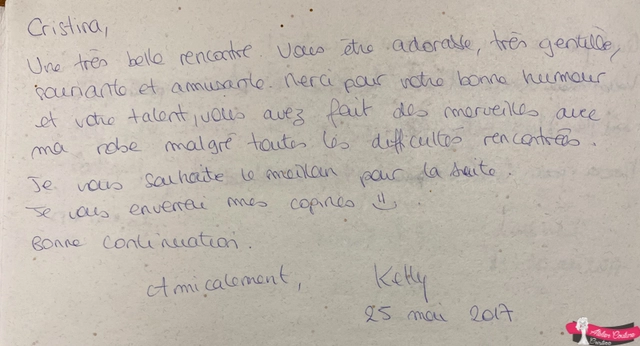 Cristina,
Une très belle rencontre Vous être adorable, très gentille,
souriante et amusante. Merci pour votre bonne humour
et votre talent, vous avez fait des merveilles avec
ma robe malgré toutes les difficultés rencontrées.
Je vous souhaite le meilleur pour la suite.
Je vous enverrai mes copines
Bonne continuation.
Amicalement, Kelly
25 mai 2017
Atelier Couture